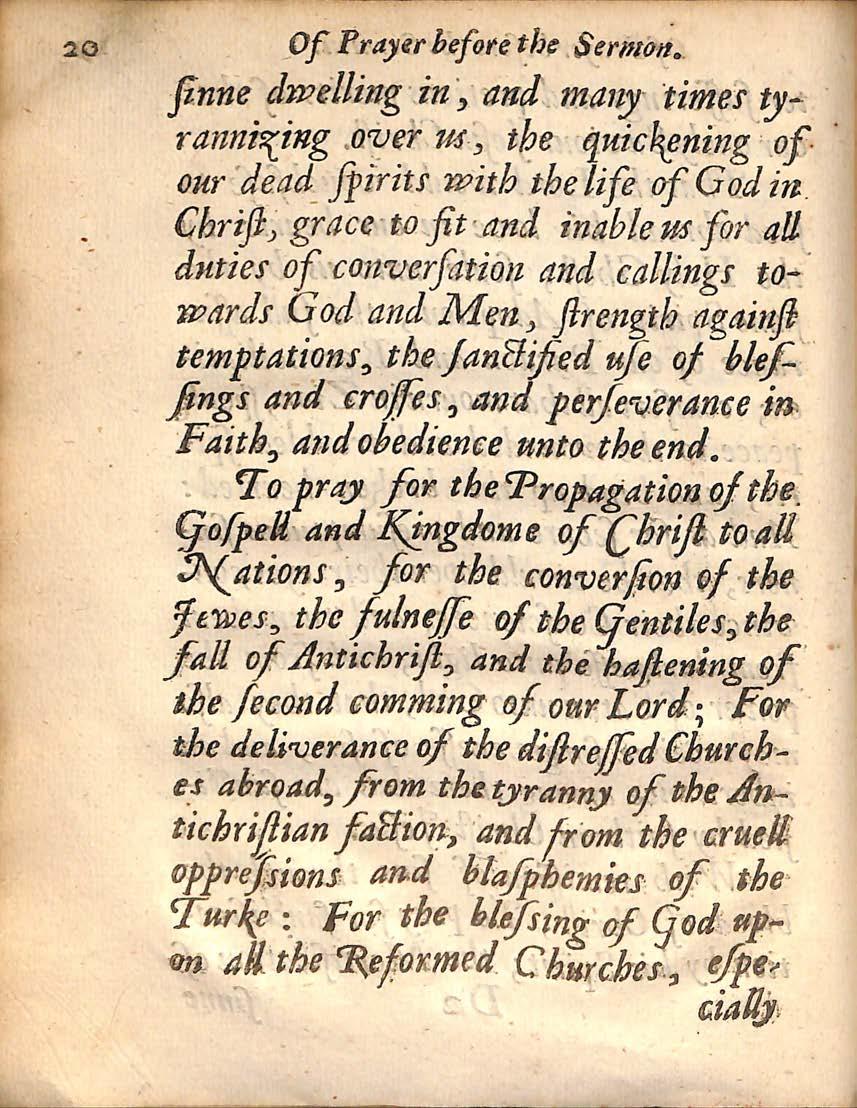 20 Of Prayer before the Sermon.
ſinne dwelling in, and many times ty-
rannizing over us, the quickening of
our dead ſpirits with the life of God in
Chriſt, grace to fit and inable us for all
duties of converſation and callings to-
wards God and Men, ſtrength againſt
temptations, the ſanctified uſe of bleſ-
ſings and croſſes, and perſeverance in
Faith, and obedience unto the end.
To pray for the Propagation of the
Goſpell and Kingdome of Chriſt to all
Nations, for the converſion of the
Jewes, the fulneſſe of the Gentiles, the
fall of Antichriſt, and the haſtening of
the ſecond comming of our Lord; For
the deliverance of the diſtreſſed Church-
es abroad, from the tyranny of the An-
tichriſtian faction, and from the cruell
oppreſsions and blaſphemies of the
Turke: For the bleſsing of God up-
on all the Reformed Churches, eſpe-
cially